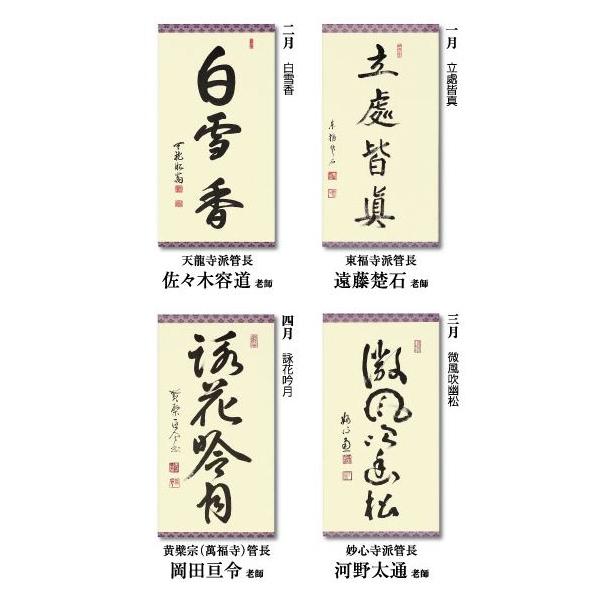 一月 立處皆真
立處皆眞
東福楚石
東福寺派管長
遠藤楚石 老師
二月 白雪香
白雪香
天龍寺派管長
佐々木容道 老師
三月 微風吹幽松
微風吹幽松
妙心寺派管長
河野太通 老師
四月 詠花吟月
詠花吟月
黄檗宗（萬福寺）管長
岡田亘令 老師